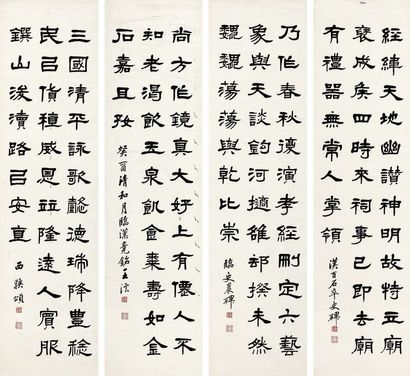 經緯天地幽讚神明故特立廟
襃成矦四時來祠事已即去廟
有禮器無常人掌領
漢百石卒史碑
乃作春秋復演孝經刪定六藝
象與天談鉤河擿雒却揆未然
巍巍蕩蕩與乾比崇
臨史晨碑
尚方作鏡真大好上有僊人不
知老渴飲玉泉飢食棗壽如金
石嘉且好
癸酉清和月臨漢竟銘王
三國清平詠歌懿德瑞降豊稔
民㠯貨稙威恩並隆遠人賓服
鐫山浚瀆路㠯安直
西狹頌